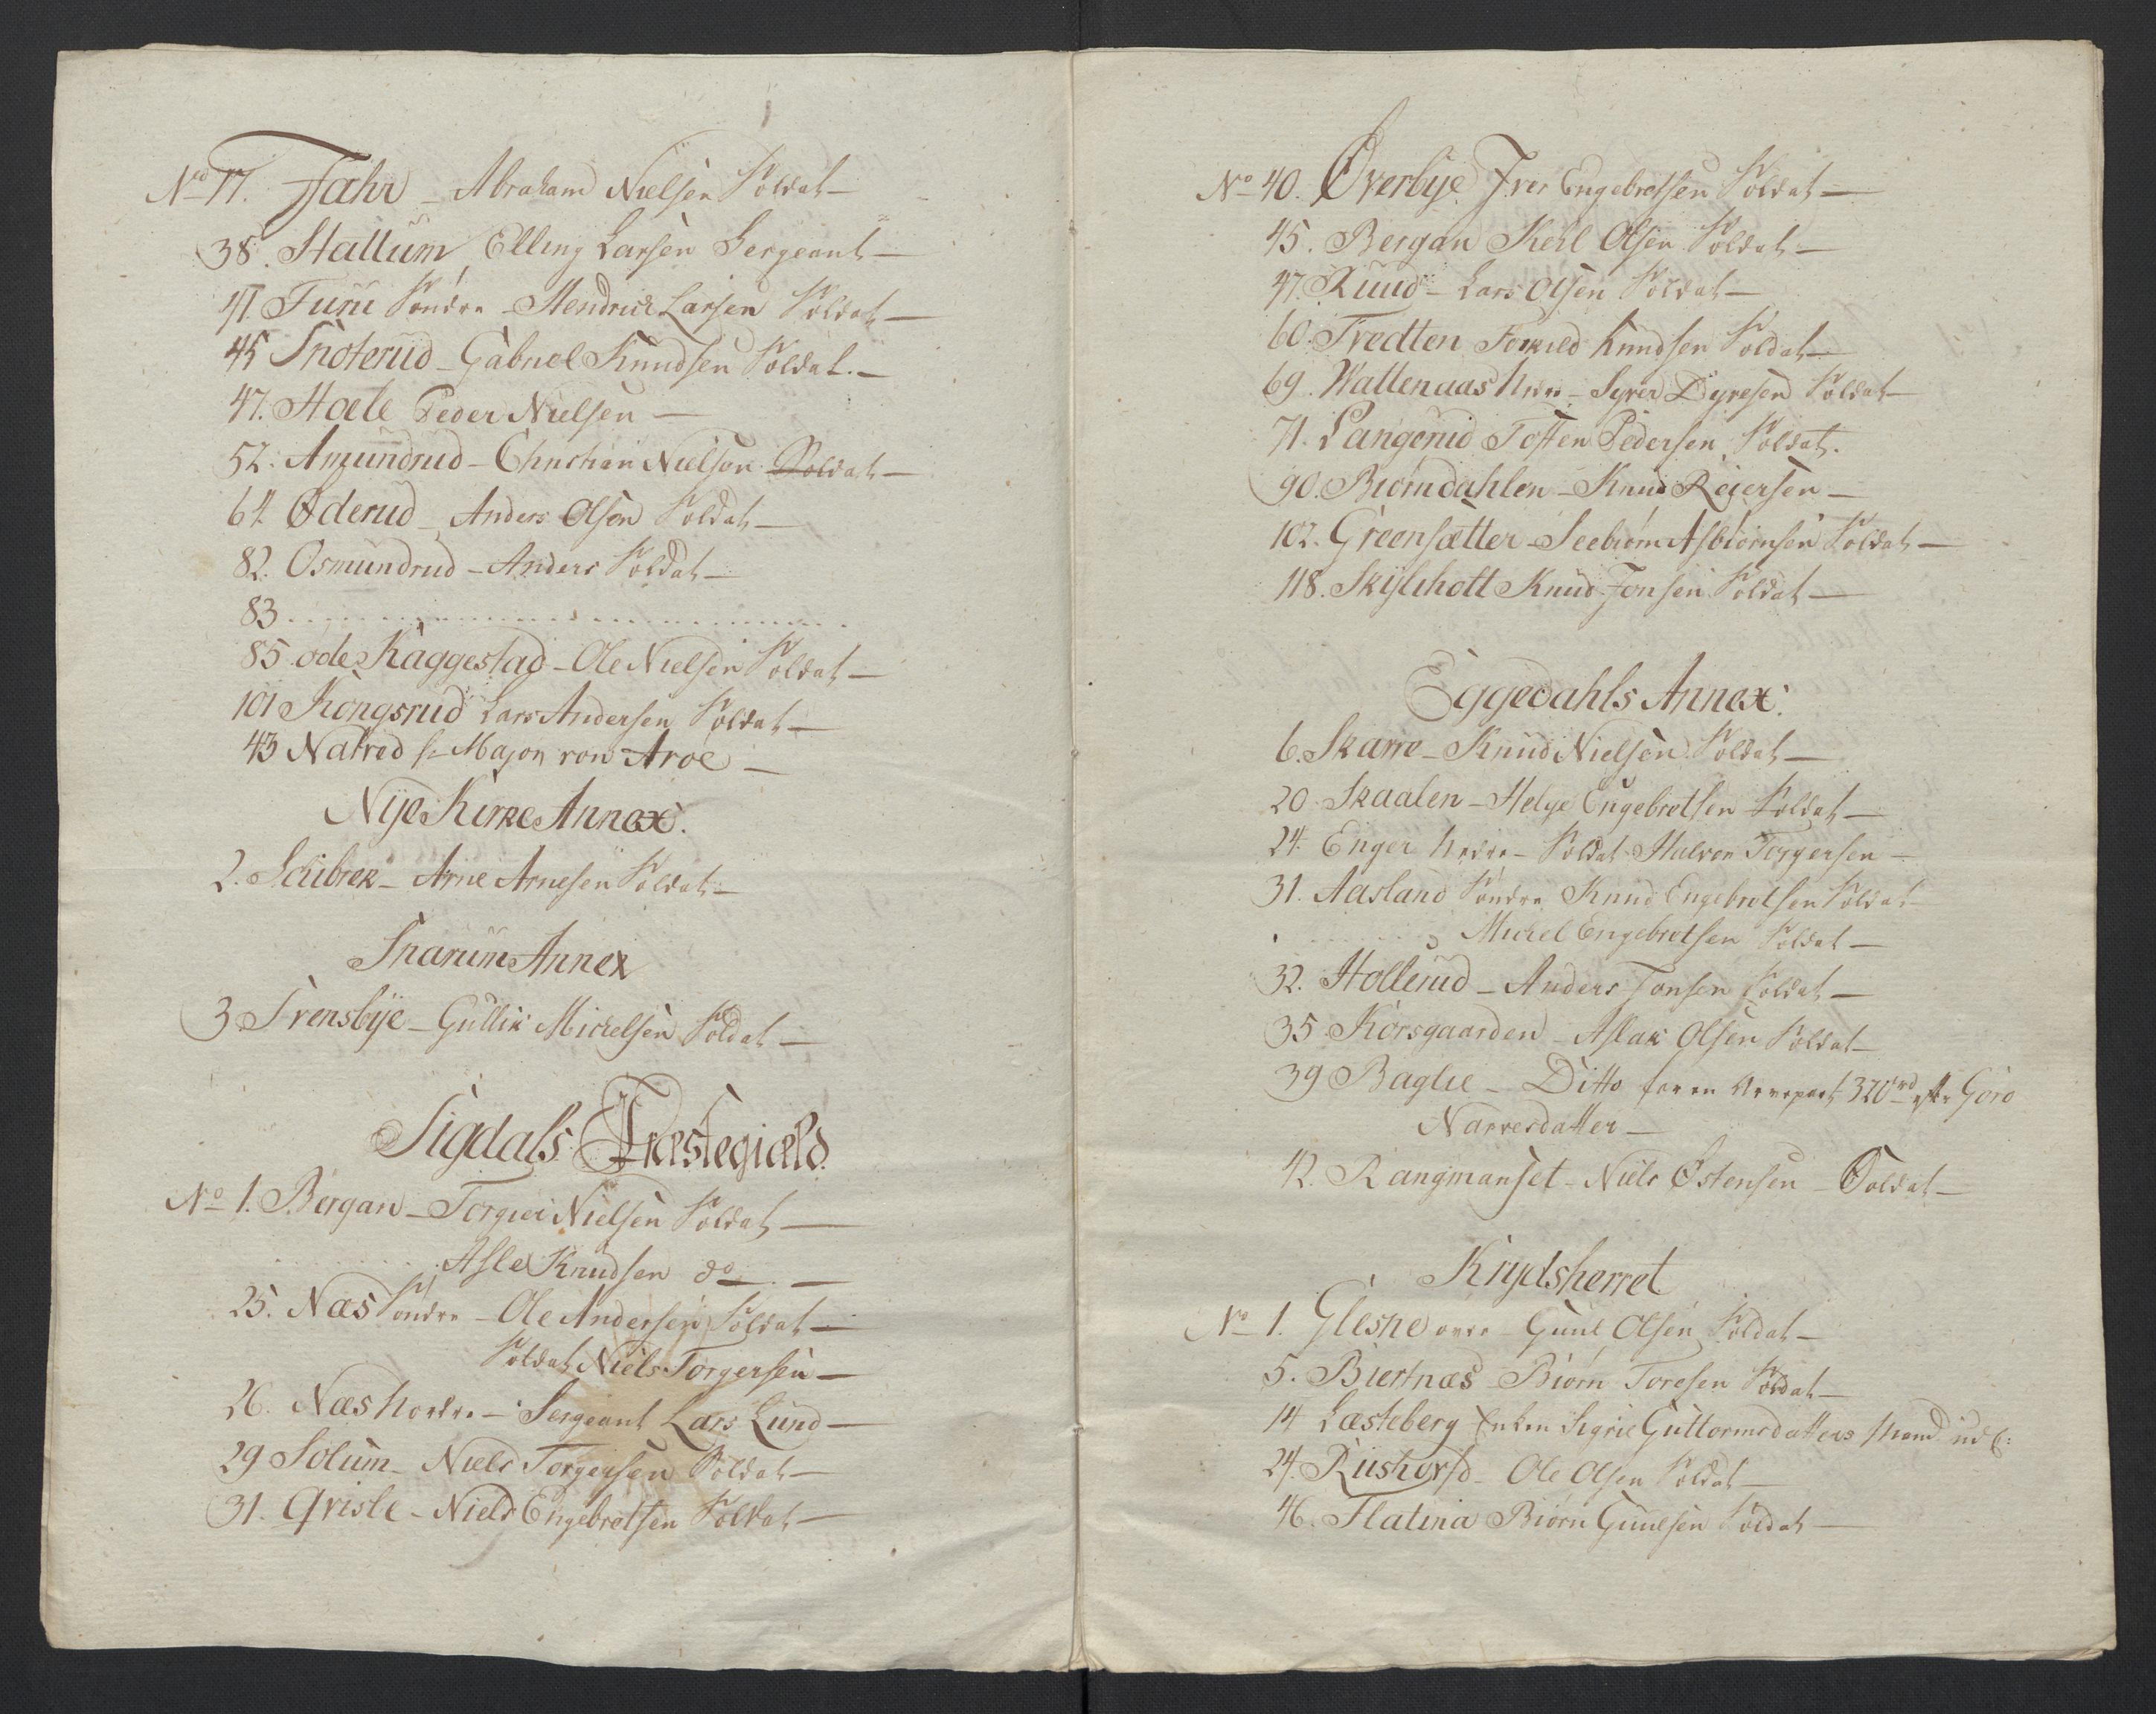 No 17. Fahr - Abraham Nielsen Soldat -
38. Hallum Elling Larsen Sergeant -
41. Furu Söndre - Hendrick Larsen Soldat -
45 Snoterud - Gabriel Knudsen Soldat. -
47. Hoele Peder Nielsen -
52. Amundrud - Christian Nielsen Soldat -
64 Øderud - Anders Olsen Soldat -
82. Osmundrud - Anders Soldat -
83 . . . . . . . . . .
85 øde Kaggestad - Ole Nielsen Soldat -
101 Kongsrud Lars Andersen Soldat -
43 Natred Major von Aroe -
Nÿe Kirke Annex.
2. - Arne Arnesen Soldat -
Snarum Annex
3. Frensbÿe - Gullik Michelsen Soldat -
Sigdals Præstegield.
No 1. Bergan - Torgier Nielsen Soldat -
. . . . . Asle Knudsen do -
25. Næs Söndre - Ole Andersen Soldat -
Soldat Niels Torgersen -
26. Næs Nordre - Sergeant Lars Lund -
29 Solum - Niels Torgersen Soldat -
31. Qvisle - Niels Engebretsen Soldat -
No 40. Øverbÿe Iver Engebretsen Soldat -
45. Bergan Kehl Olsen Soldat -
47. Ruud - Lars Olsen Soldat -
60. Tredten Torkild Knudsen Soldat -
69. Wattenaas Nedre - Syver Dyresen Soldat -
71. Langerud Tosten Pedersen Soldat.
90. Biørndahlen - Knud Reiersen -
102. Greensætter - Seebiørn Asbiørnsen Soldat -
118. Knud Jonsen Soldat -
Eggedahls Annex.
6. Skarre - Knud Nielsen Soldat -
20. Skaalen - Helge Engebretsen Soldat -
24. Enger Nedre - Soldat Halvor Torgersen -
31. Aasland Söndre Knud Engebretsen Soldat
. . . . . Michel Engebretsen Soldat -
32. Hollerud - Anders Jonsen Soldat -
35. Korsgaarden - Aslak Olsen Soldat -
39 Baglie - Ditto for en Arvepart 320rd efter Goro
Narvesdatter -
42. Rangmanset - Niels Østensen - Soldat -
Krydsherret
No 1. Glesne øvre - Guul Olsen Soldat -
5. Biertnæs Biørn Toresen Soldat -
14 Læsteberg Enken Sigrie Guttormsdatters Mand
24. - Ole Olsen Soldat -
46. Flatina Biørn Guulsen Soldat -